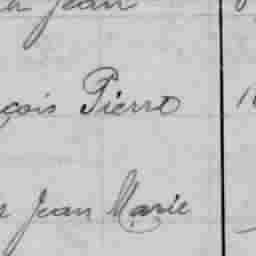 Jean
çois Pierre
Jean Marie